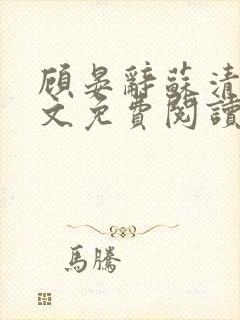 顧晏辭蘇清
文免費閱讀
馬騰